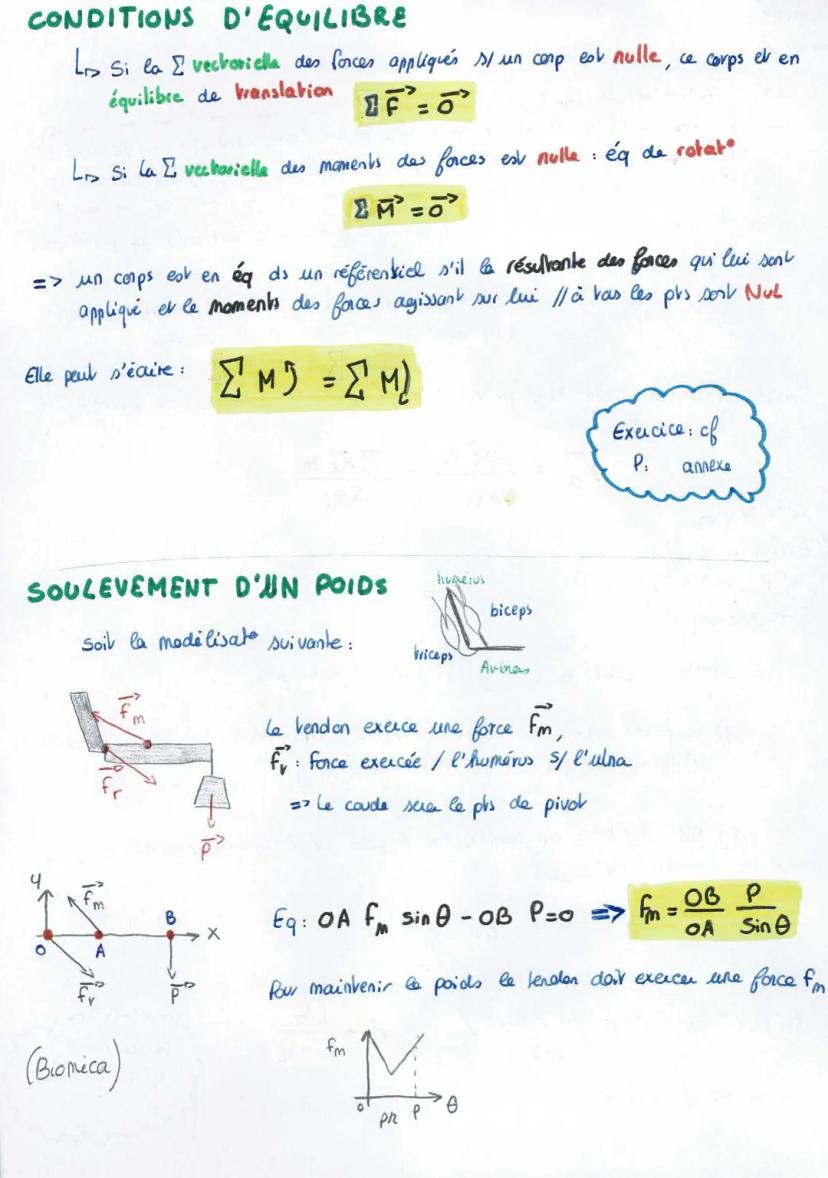 CONDITIONS D'EQUILIBRE
↳ Si la Σ vectorielle des forces appliqués s/ un corp est nulle, ce corps et en
équilibre de translation
Σ F⃗ = 0⃗
↳ Si la Σ vectorielle des moments des forces est nulle : éq de rotat°
Σ M⃗ = 0⃗
=> un corps est en éq ds un référentiel s'il la résultante des forces qui lui sont
appliqué et le moments des forces agissant sur lui // à tas les pts sont NUL
Elle peut s'écrire : Σ M↺ = Σ M↻
Exercice : cf
P: annexe
SOULEVEMENT D'UN POIDS
humérus
biceps
triceps
Soit la modélisat° suivante :
f⃗m
Le tendon exerce une force f⃗m,
f⃗r : force exercée / l'humérus s/ l'ulna
f⃗r
=> Le coude sera le pts de pivot
P⃗
y
f⃗m
B
x
O
A
f⃗r
P⃗
Eq : OA fm sin θ - OB P=0 => fm = OB/OA P/Sin θ
Pour maintenir le poids le tendon doit exercer une force fm
(Biomica)
fm
0
θ